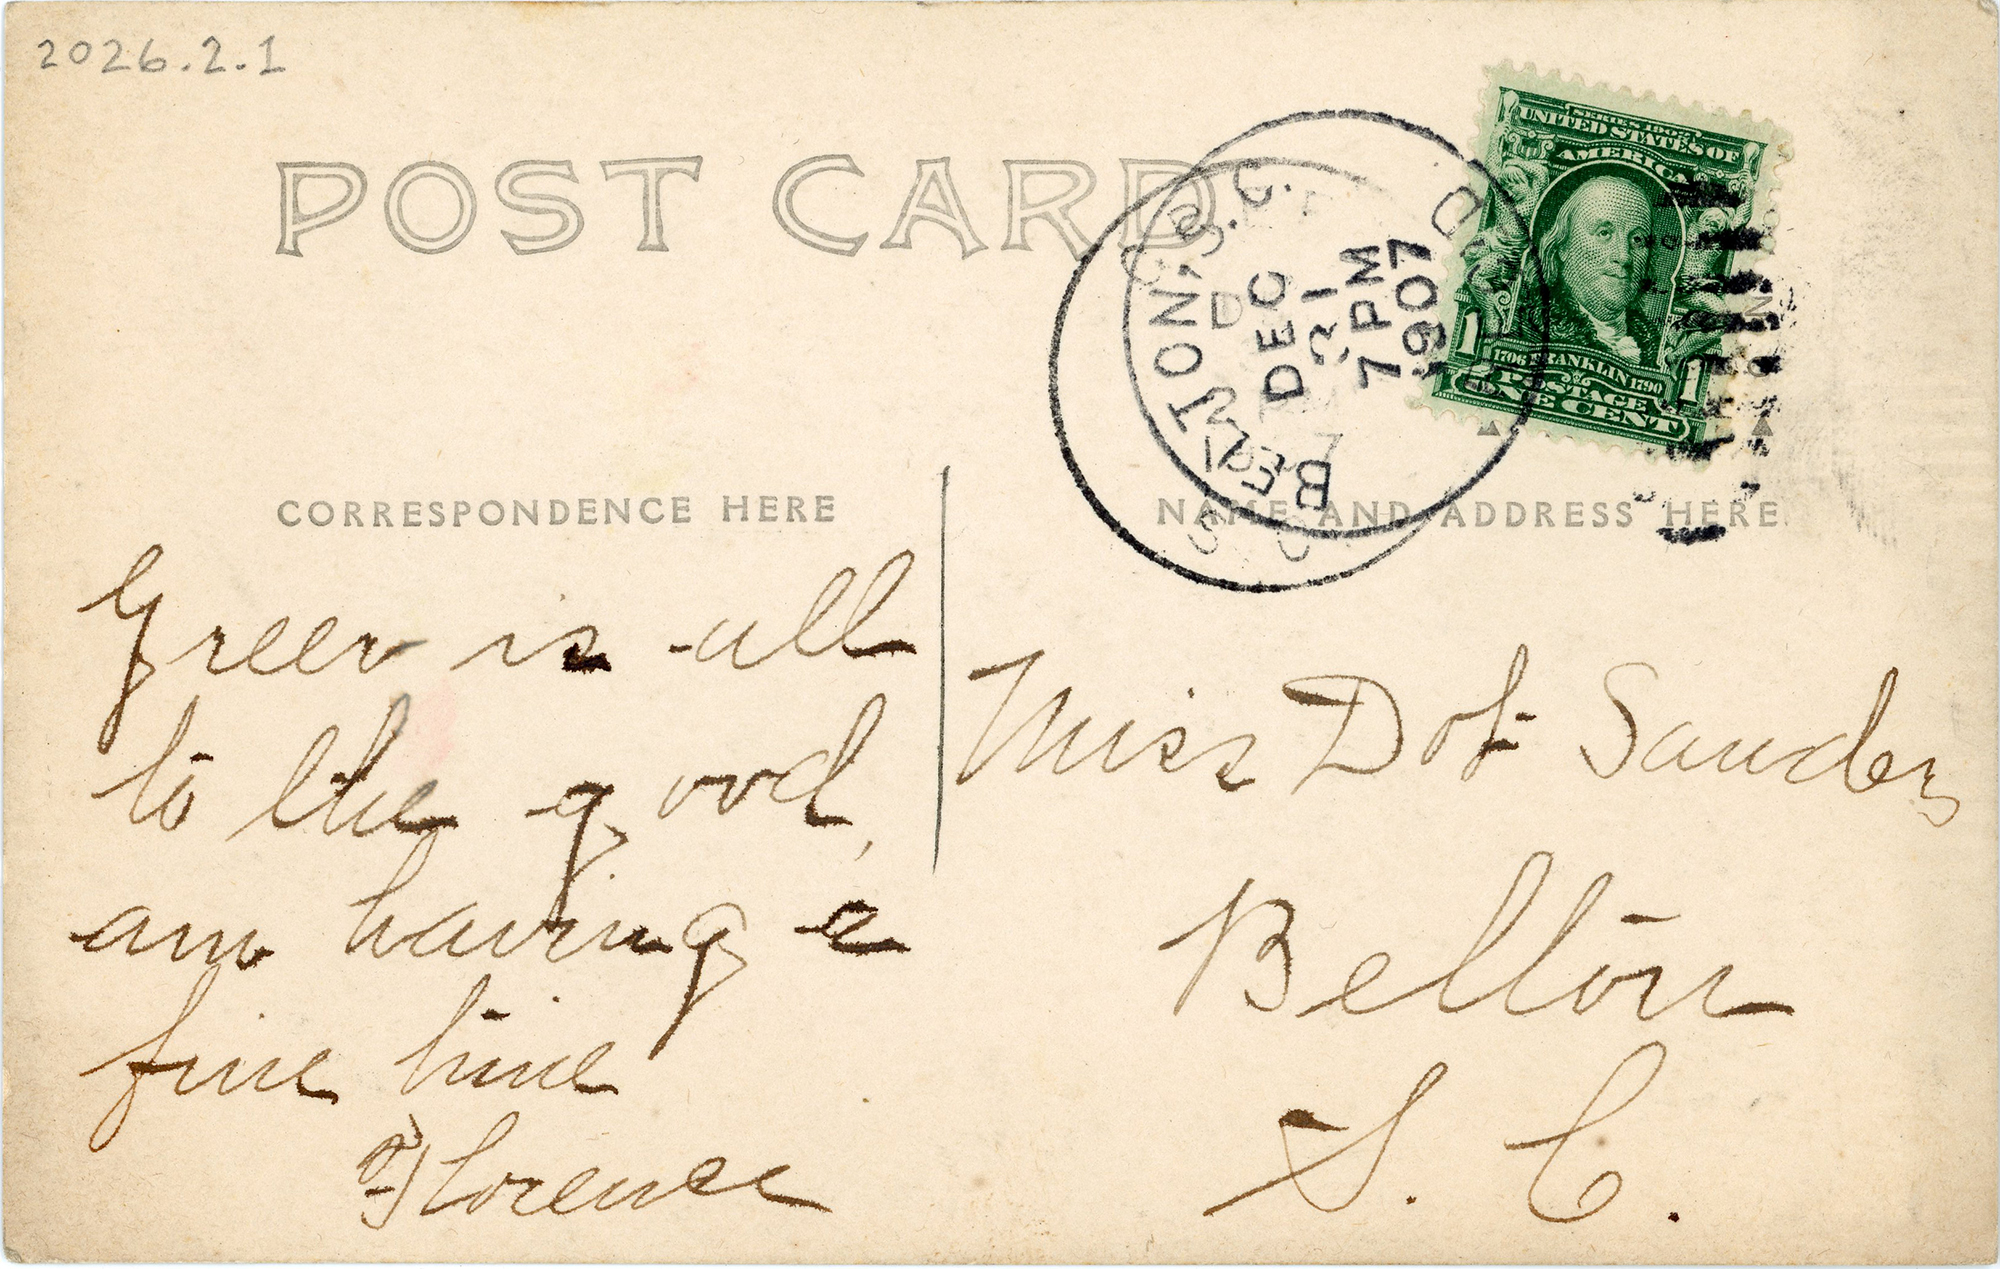 2026.2.1
POST CARD
SERIES 1902
UNITED STATES OF
AMERICA
1706 FRANKLIN 1790
1 1
POSTAGE
ONE CENT
BELTON, S.C.
DEC
21
7 PM
1907
CORRESPONDENCE HERE
NAME AND ADDRESS HERE
Greer is all
to the good,
am having a
fine time
Florence
Miss Dot Sanders
Belton
S. C.